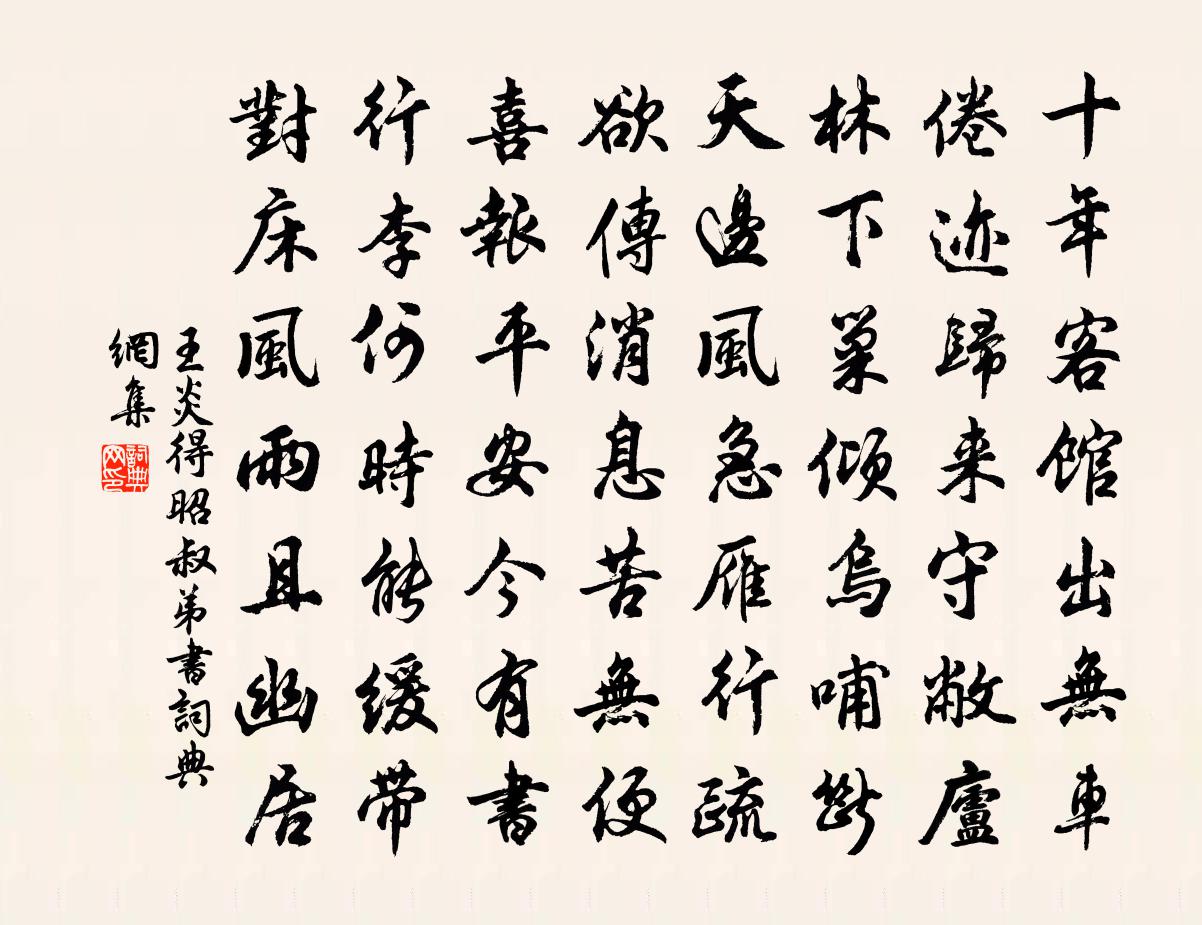 十年客馆出無車
倦迹歸来守敝廬
林下巢倾烏哺斷
天邊風急雁行疏
欲傳消息苦無便
喜報平安今有書
行李何時能缓带
對床風雨且幽居
王炎得昭叔弟書詞典
網集
詞典
网印